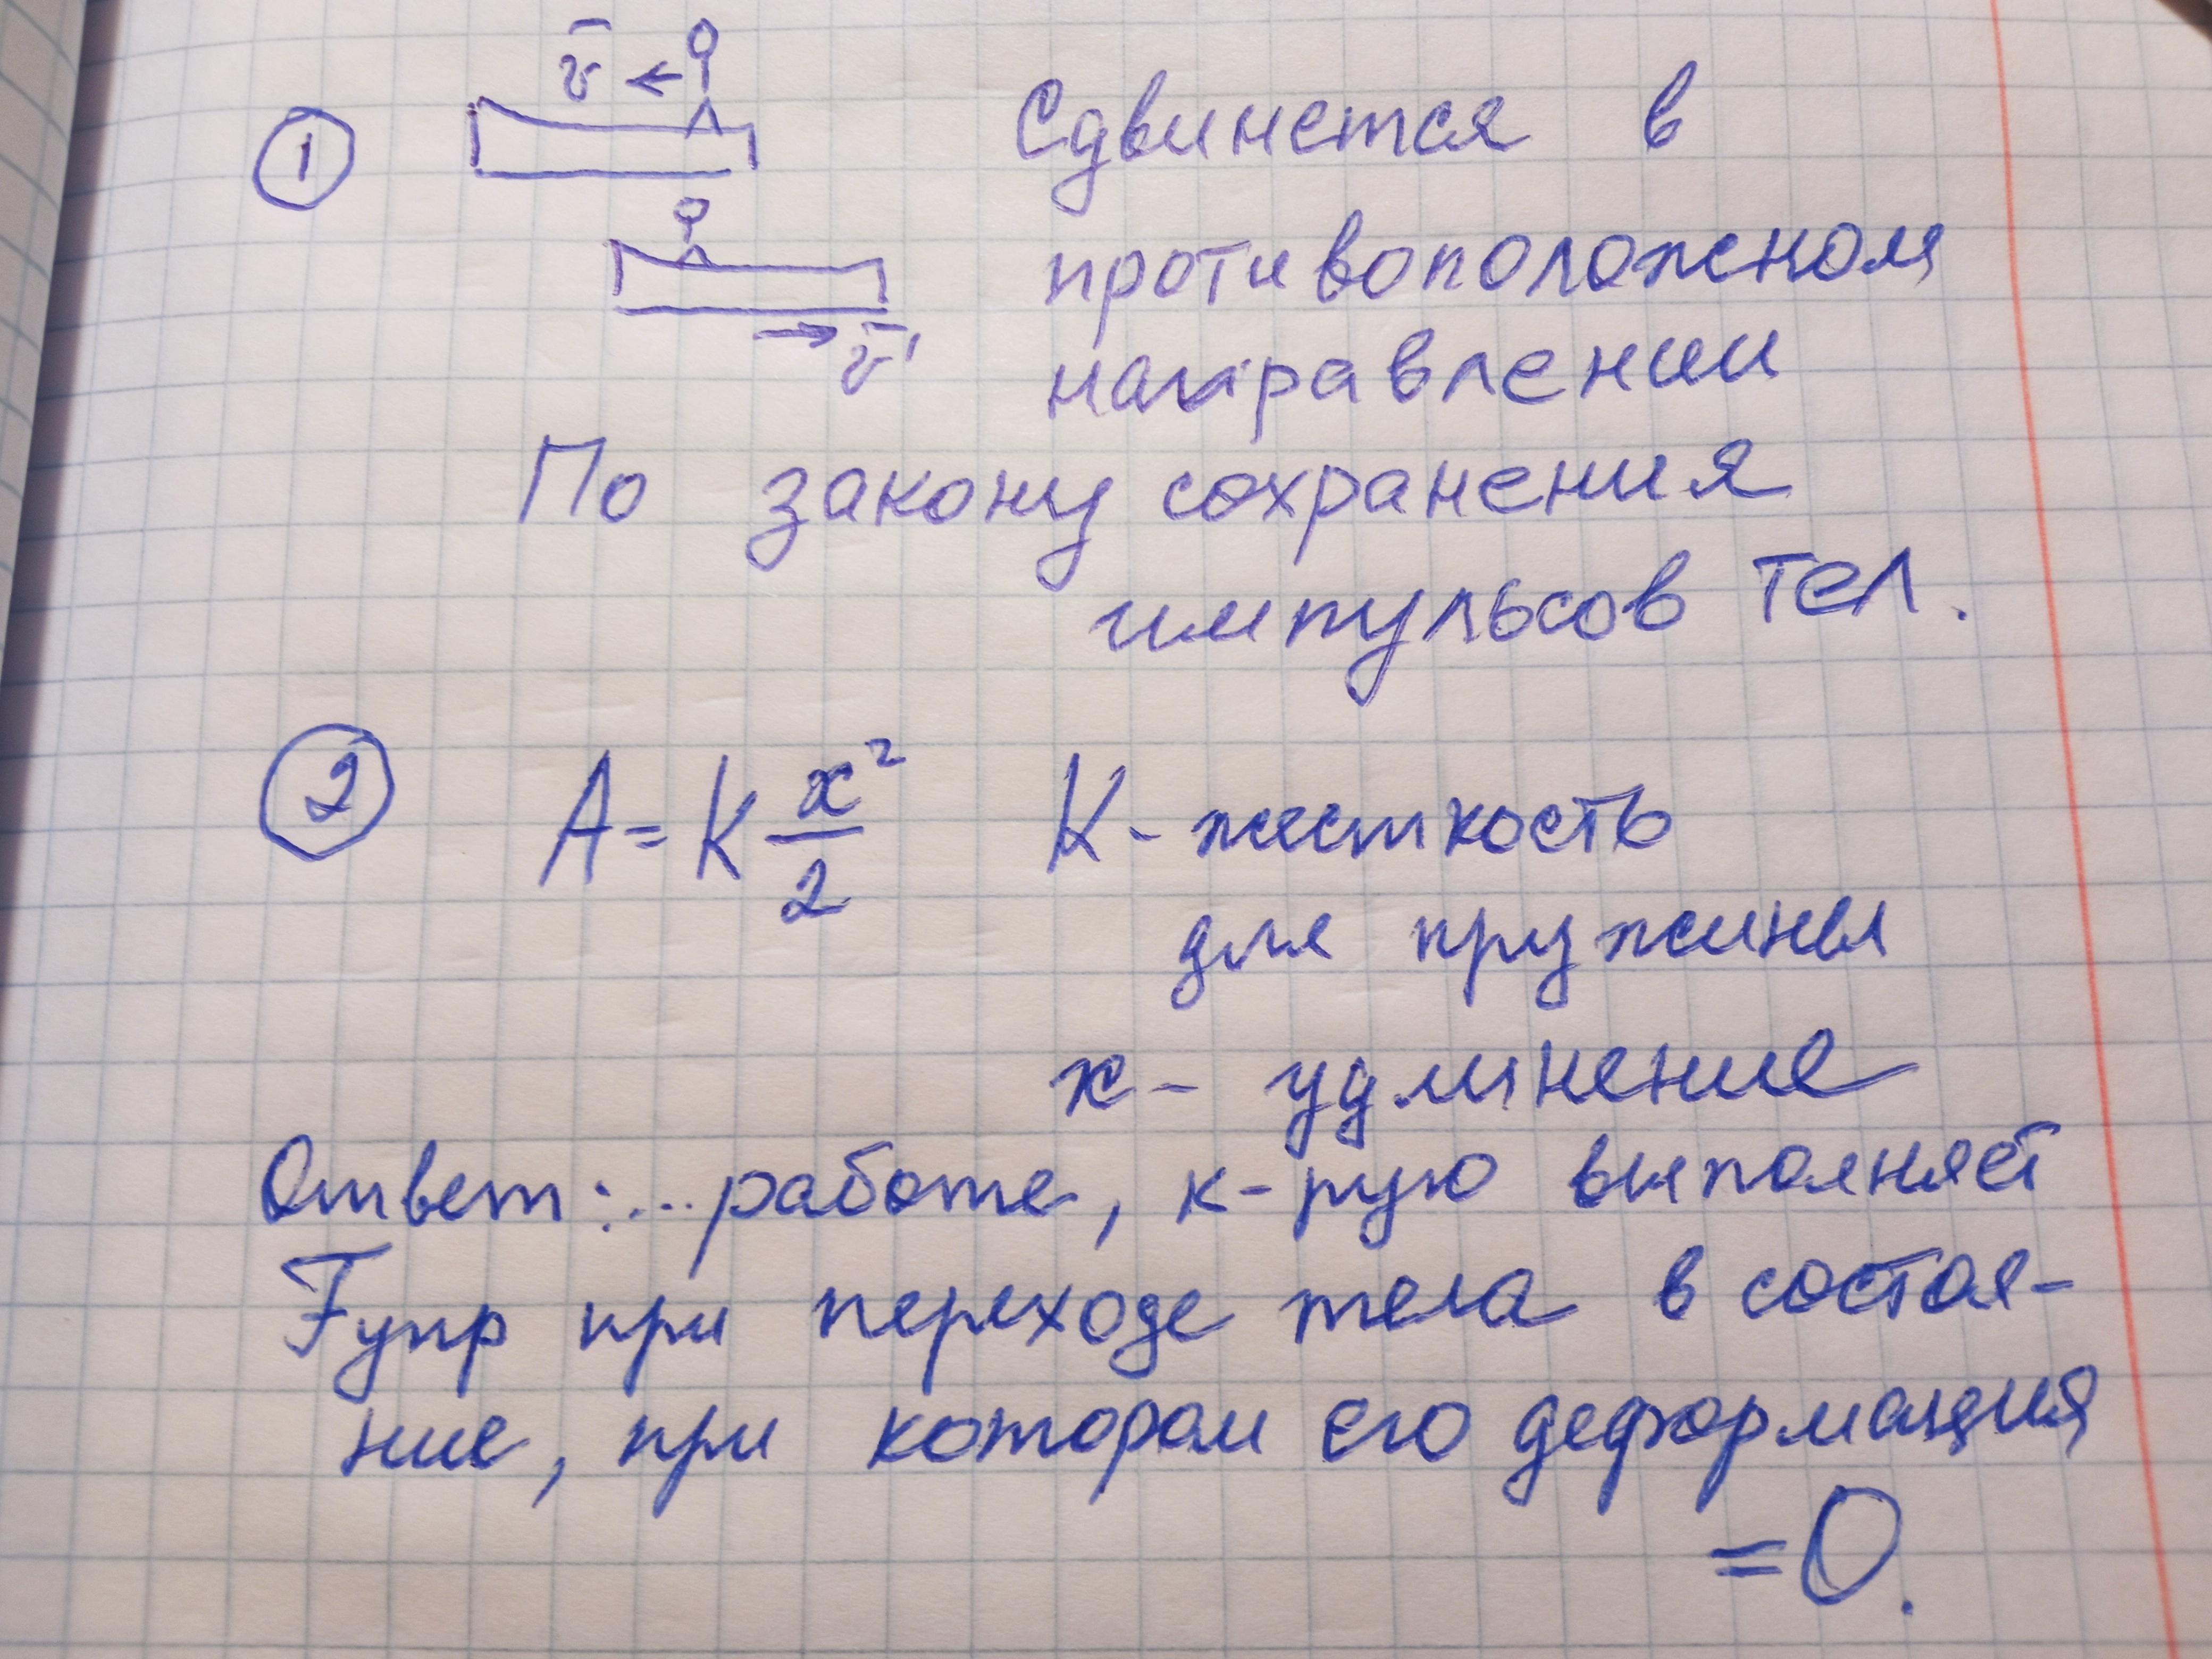 v̄
1 Сдвинется в
противоположном
v̄'
направлении
По закону сохранения
импульсов тел.
2 A = K x²/2 K - жесткость
для пружины
x - удлинение
Ответ: ... работе, к-рую выполняет
Fупр при переходе тела в состоя-
ние, при котором его деформация
= 0.